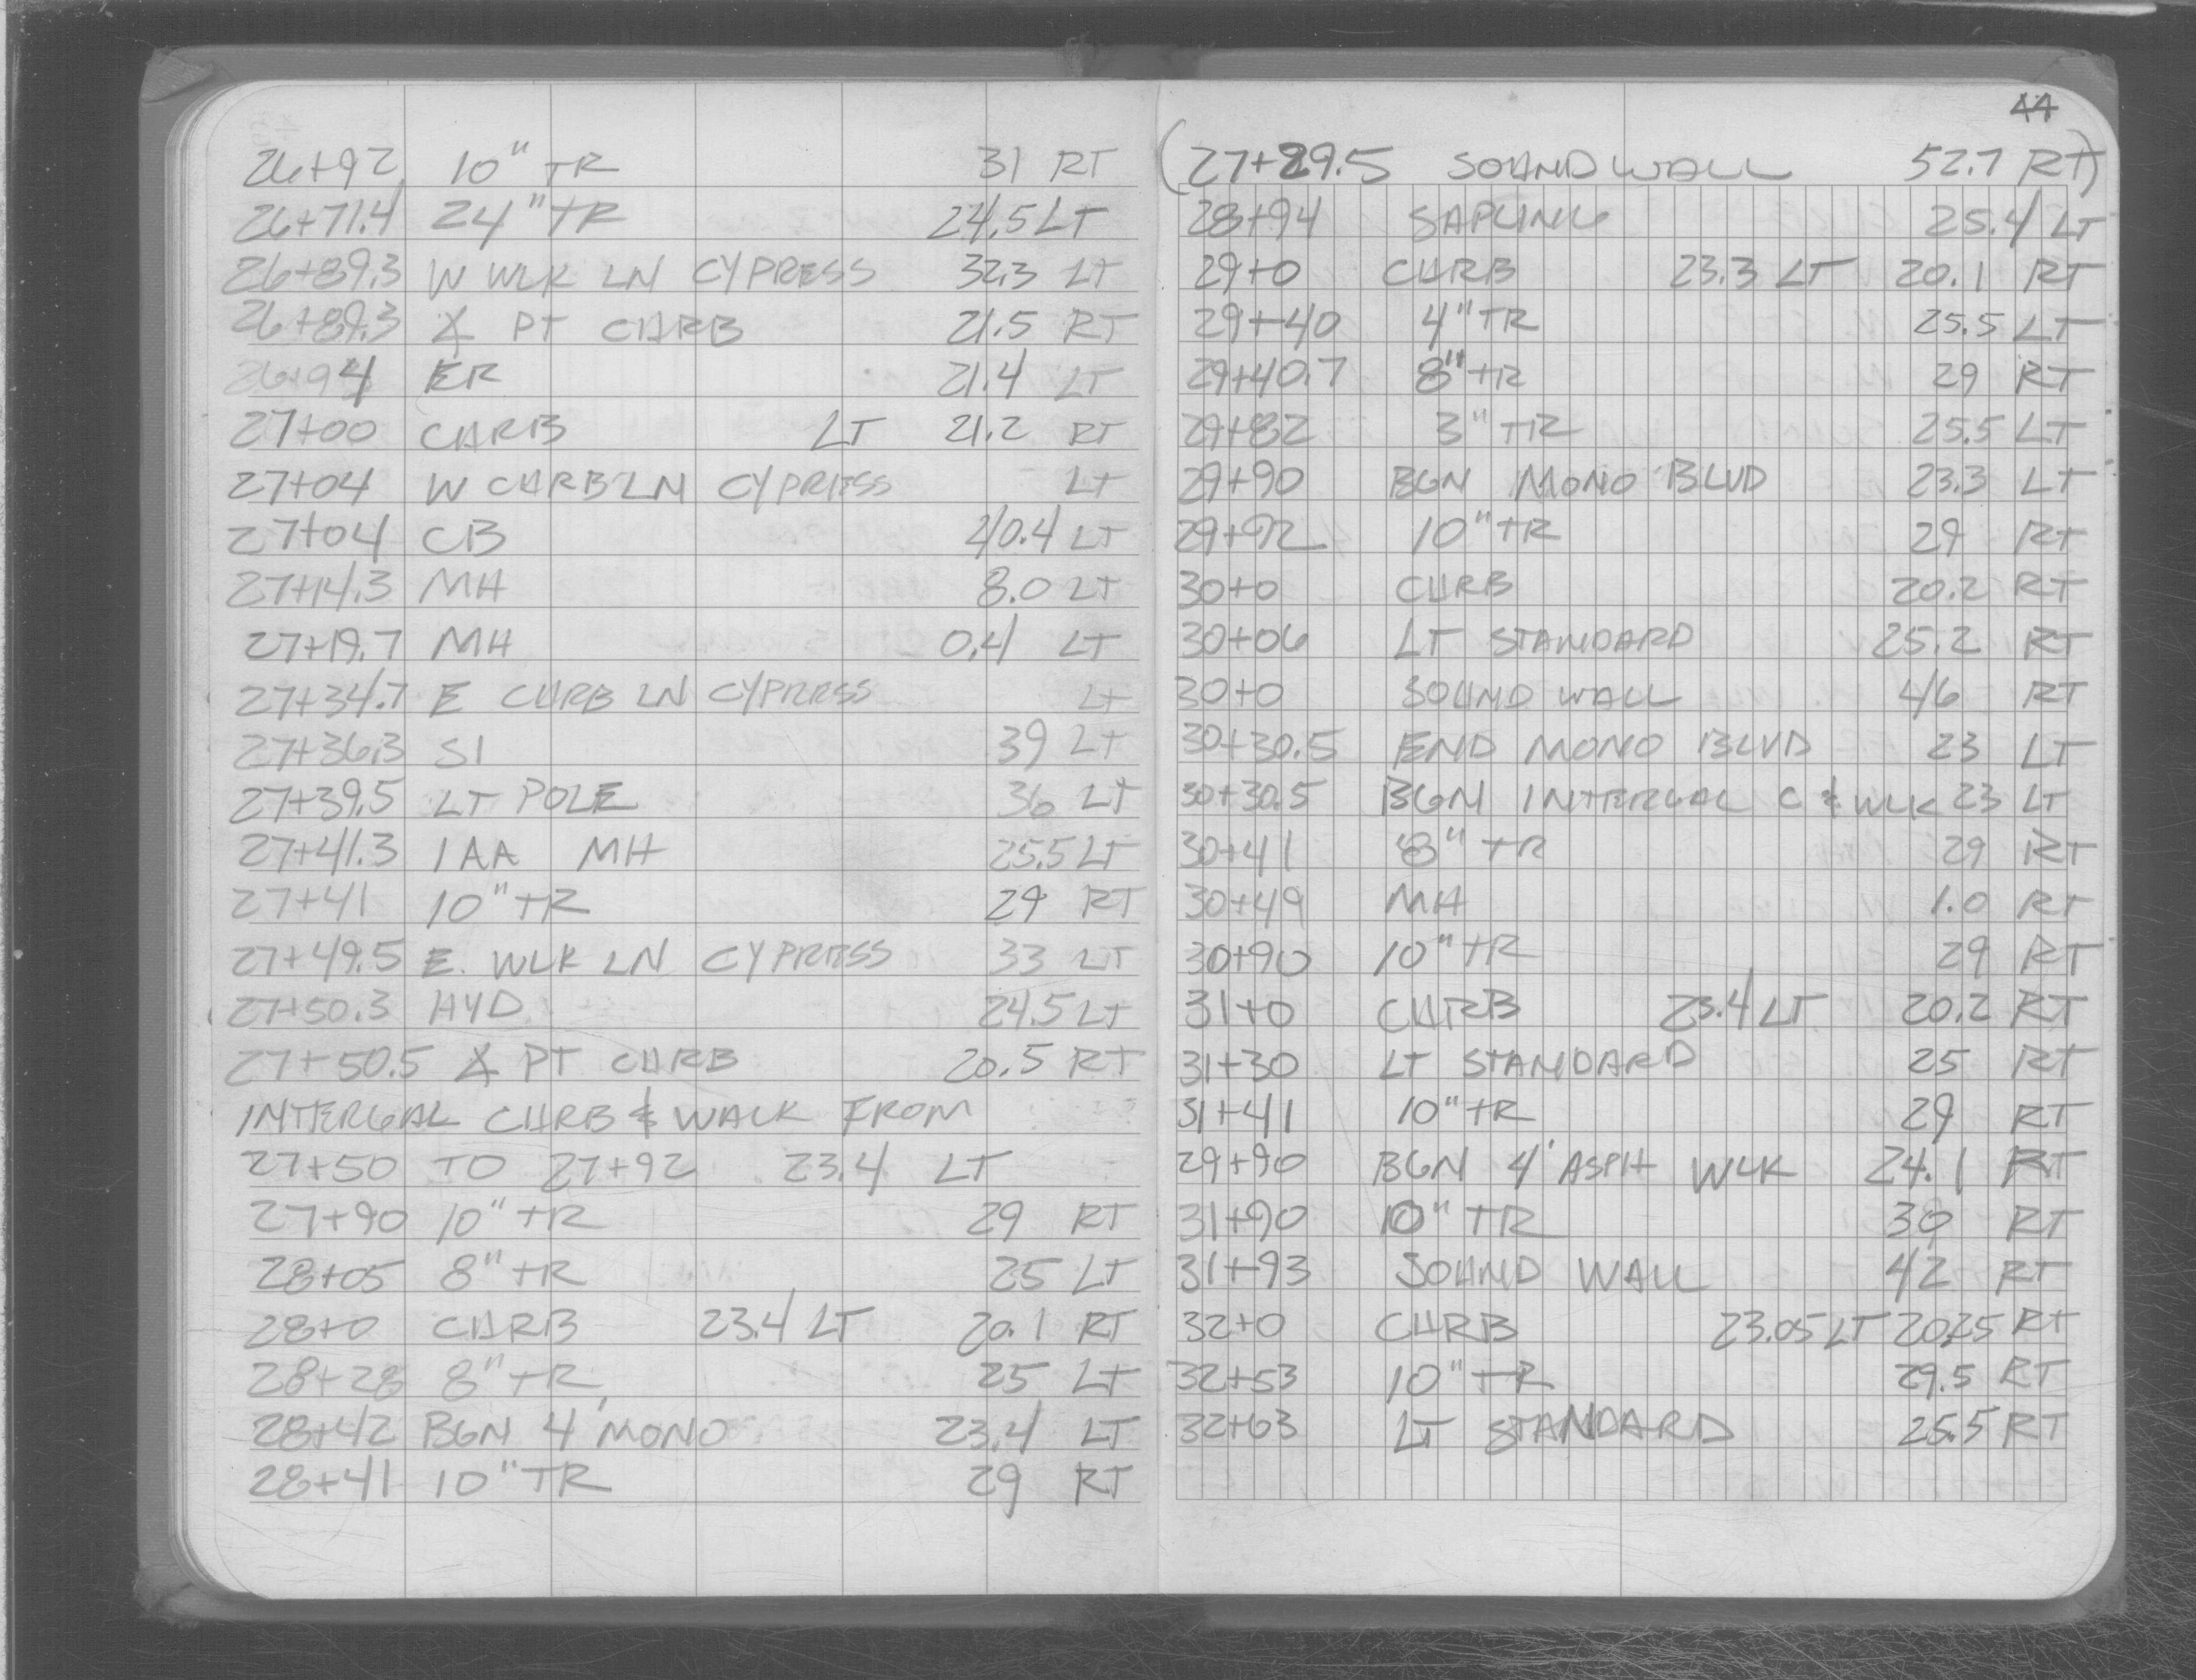 26+92 10" TR 31 RT
26+71.4 24" TR 24.5 LT
26+89.3 W WLK LN CYPRESS 32.3 LT
26+89.3 ∠ PT CURB 21.5 RT
26+94 ER 21.4 LT
27+00 CURB LT 21.2 RT
27+04 W CURB LN CYPRESS LT
27+04 CB 20.4 LT
27+14.3 MH 8.0 LT
27+19.7 MH 0.4 LT
27+34.7 E CURB LN CYPRESS LT
27+36.3 SI 39 LT
27+39.5 LT POLE 36 LT
27+41.3 1AA MH 25.5 LT
27+41 10" TR 29 RT
27+49.5 E. WLK LN CYPRESS 33 LT
27+50.3 HYD 24.5 LT
27+50.5 ∠ PT CURB 20.5 RT
INTERGAL CURB & WALK FROM
27+50 TO 27+92 23.4 LT
27+90 10" TR 29 RT
28+05 8" TR 25 LT
28+0 CURB 23.4 LT 20.1 RT
28+28 8" TR 25 LT
28+42 BGN 4' MONO 23.4 LT
28+41 10" TR 29 RT
44
(27+29.5 SOUND WALL 52.7 RT)
28+94 SAPLING 25.4 LT
29+0 CURB 23.3 LT 20.1 RT
29+40 4" TR 25.5 LT
29+40.7 8" TR 29 RT
29+82 3" TR 25.5 LT
29+90 BGN MONO BLVD 23.3 LT
29+92 10" TR 29 RT
30+0 CURB 20.2 RT
30+06 LT STANDARD 25.2 RT
30+0 SOUND WALL 46 RT
30+30.5 END MONO BLVD 23 LT
30+30.5 BGN INTERGAL C & WLK 23 LT
30+41 8" TR 29 RT
30+49 MH 1.0 RT
30+90 10" TR 29 RT
31+0 CURB 23.4 LT 20.2 RT
31+30 LT STANDARD 25 RT
31+41 10" TR 29 RT
29+90 BGN 4' ASPH WLK 24.1 RT
31+90 10" TR 30 RT
31+93 SOUND WALL 42 RT
32+0 CURB 23.05 LT 20.25 RT
32+53 10" TR 29.5 RT
32+63 LT STANDARD 25.5 RT